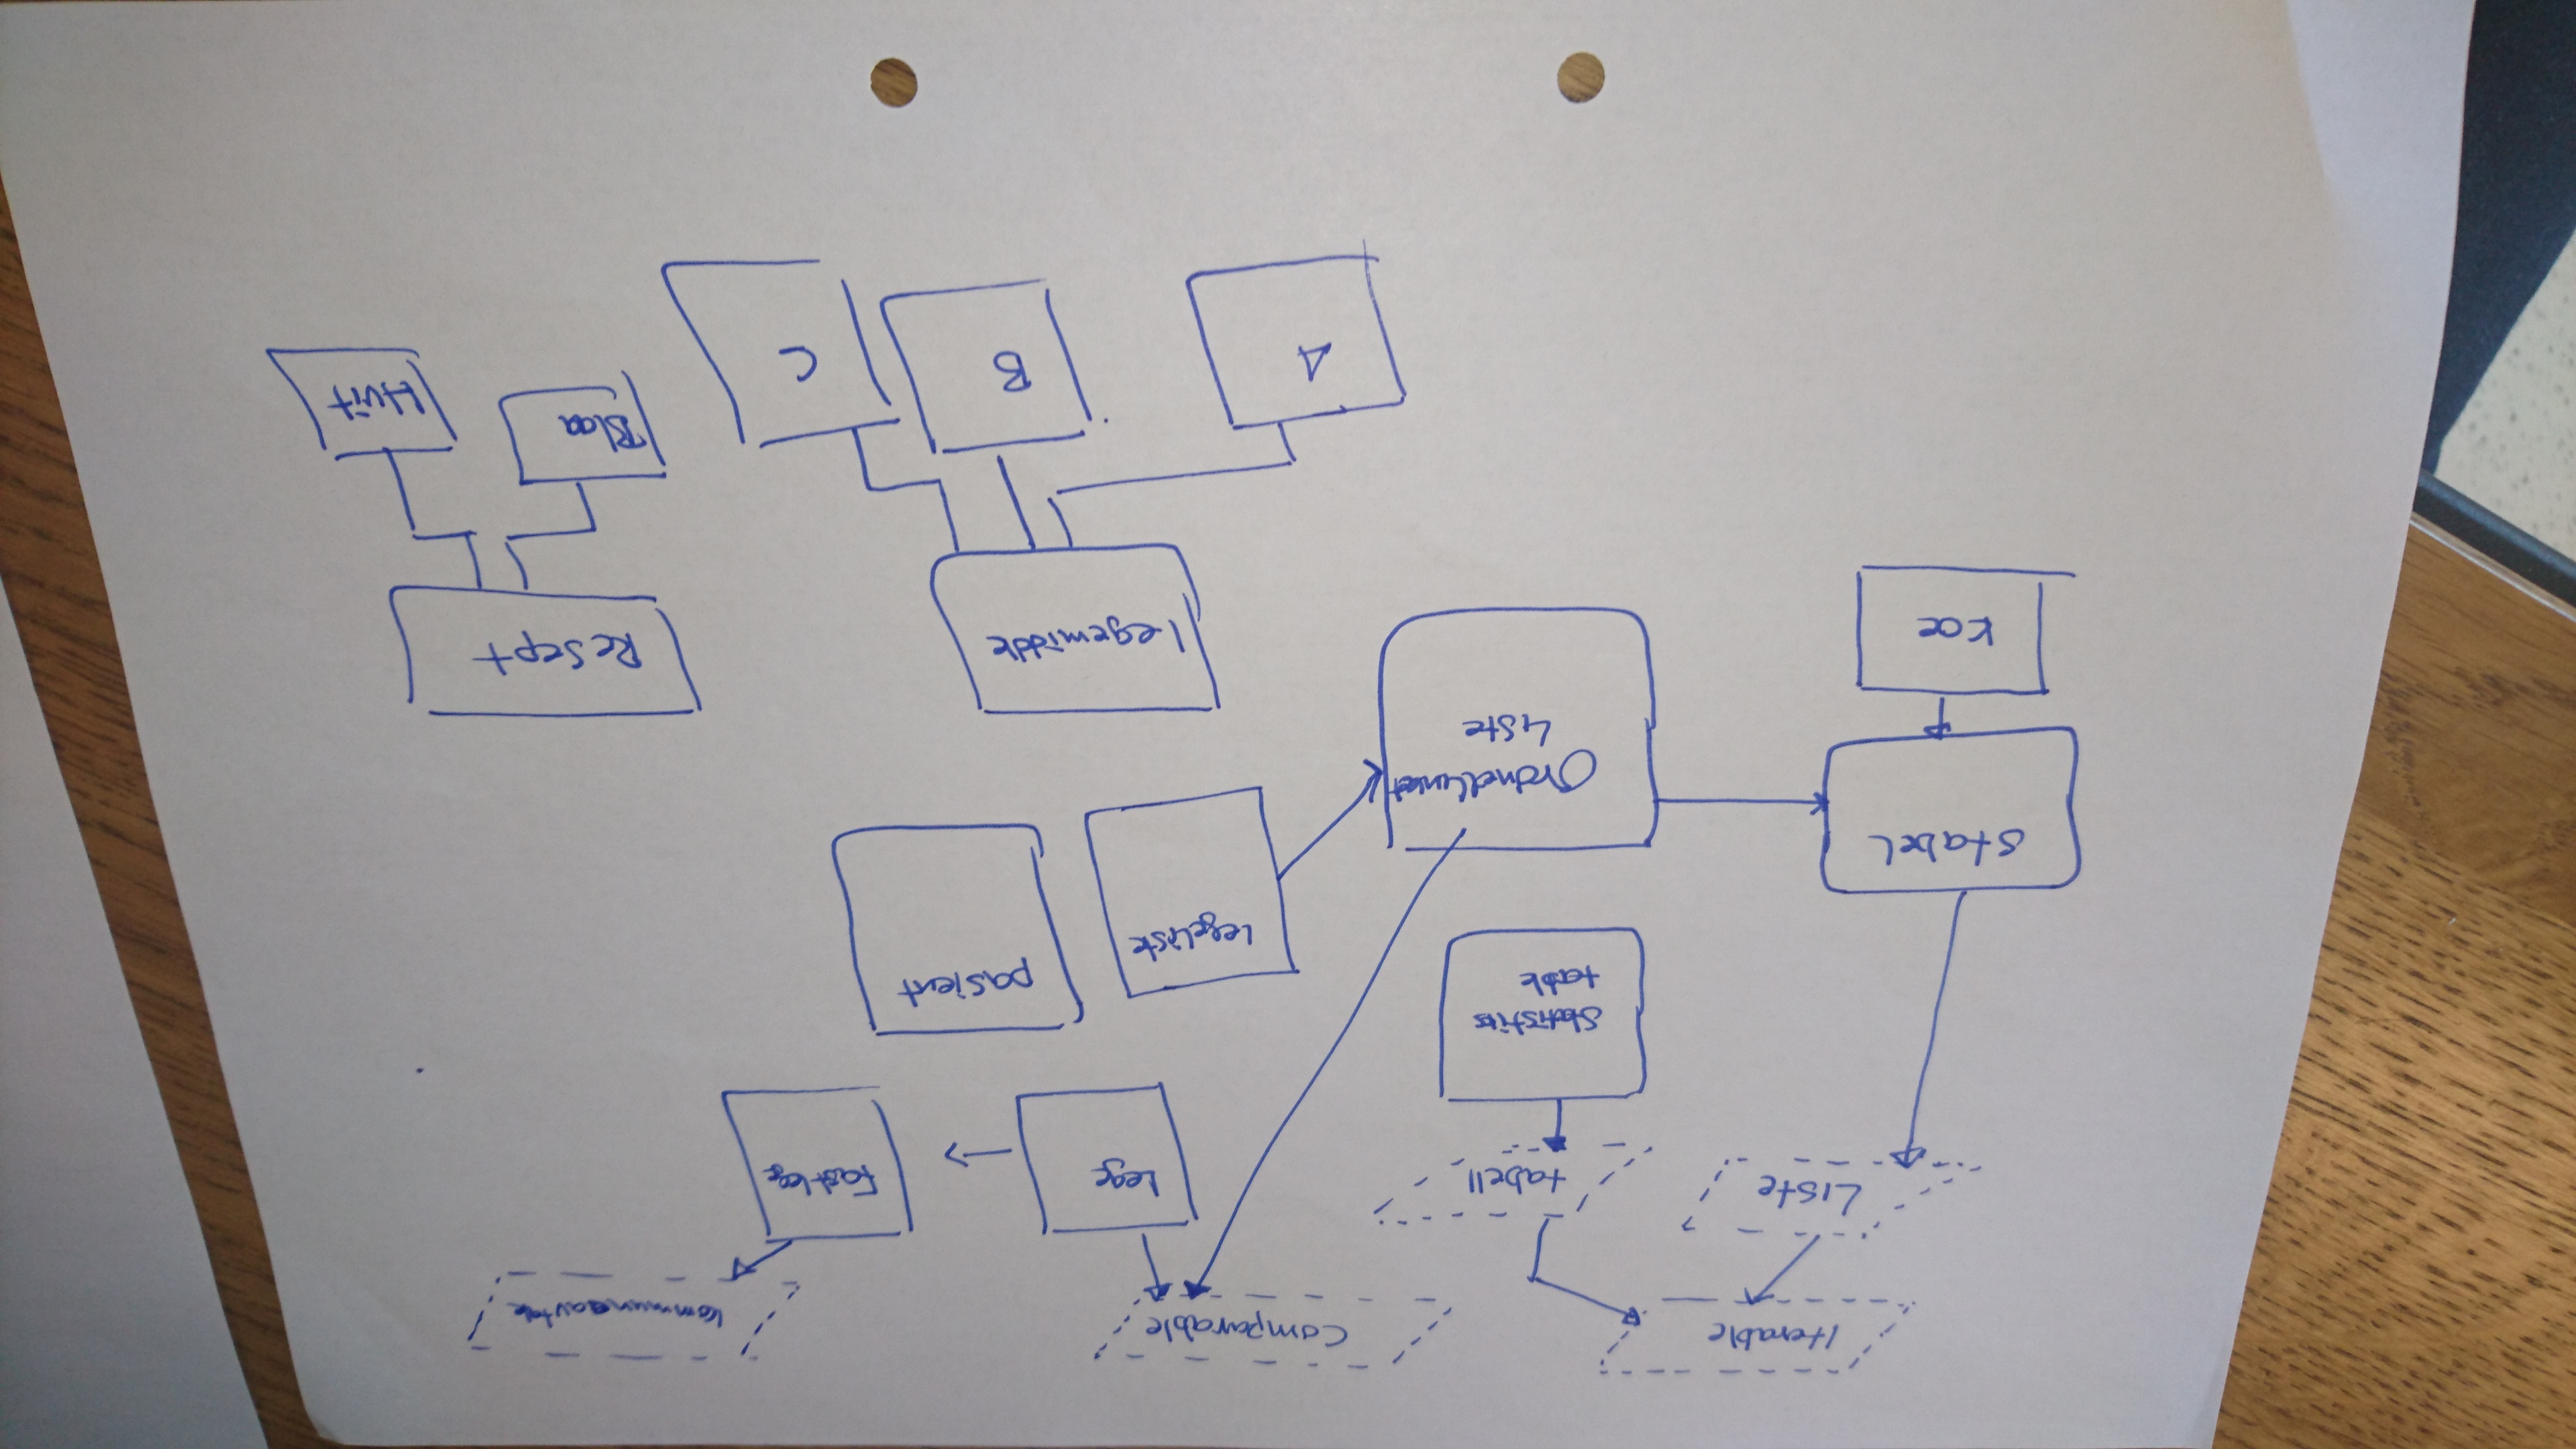 Iterable
Comparable
Kommuneavtale
Liste
tabell
Lege
Fastlege
Statistiks
table
LegeListe
pasient
Stabel
OrdnetLinket
Liste
Koe
Legemiddle
Resept
A
B
C
Blaa
Hvit